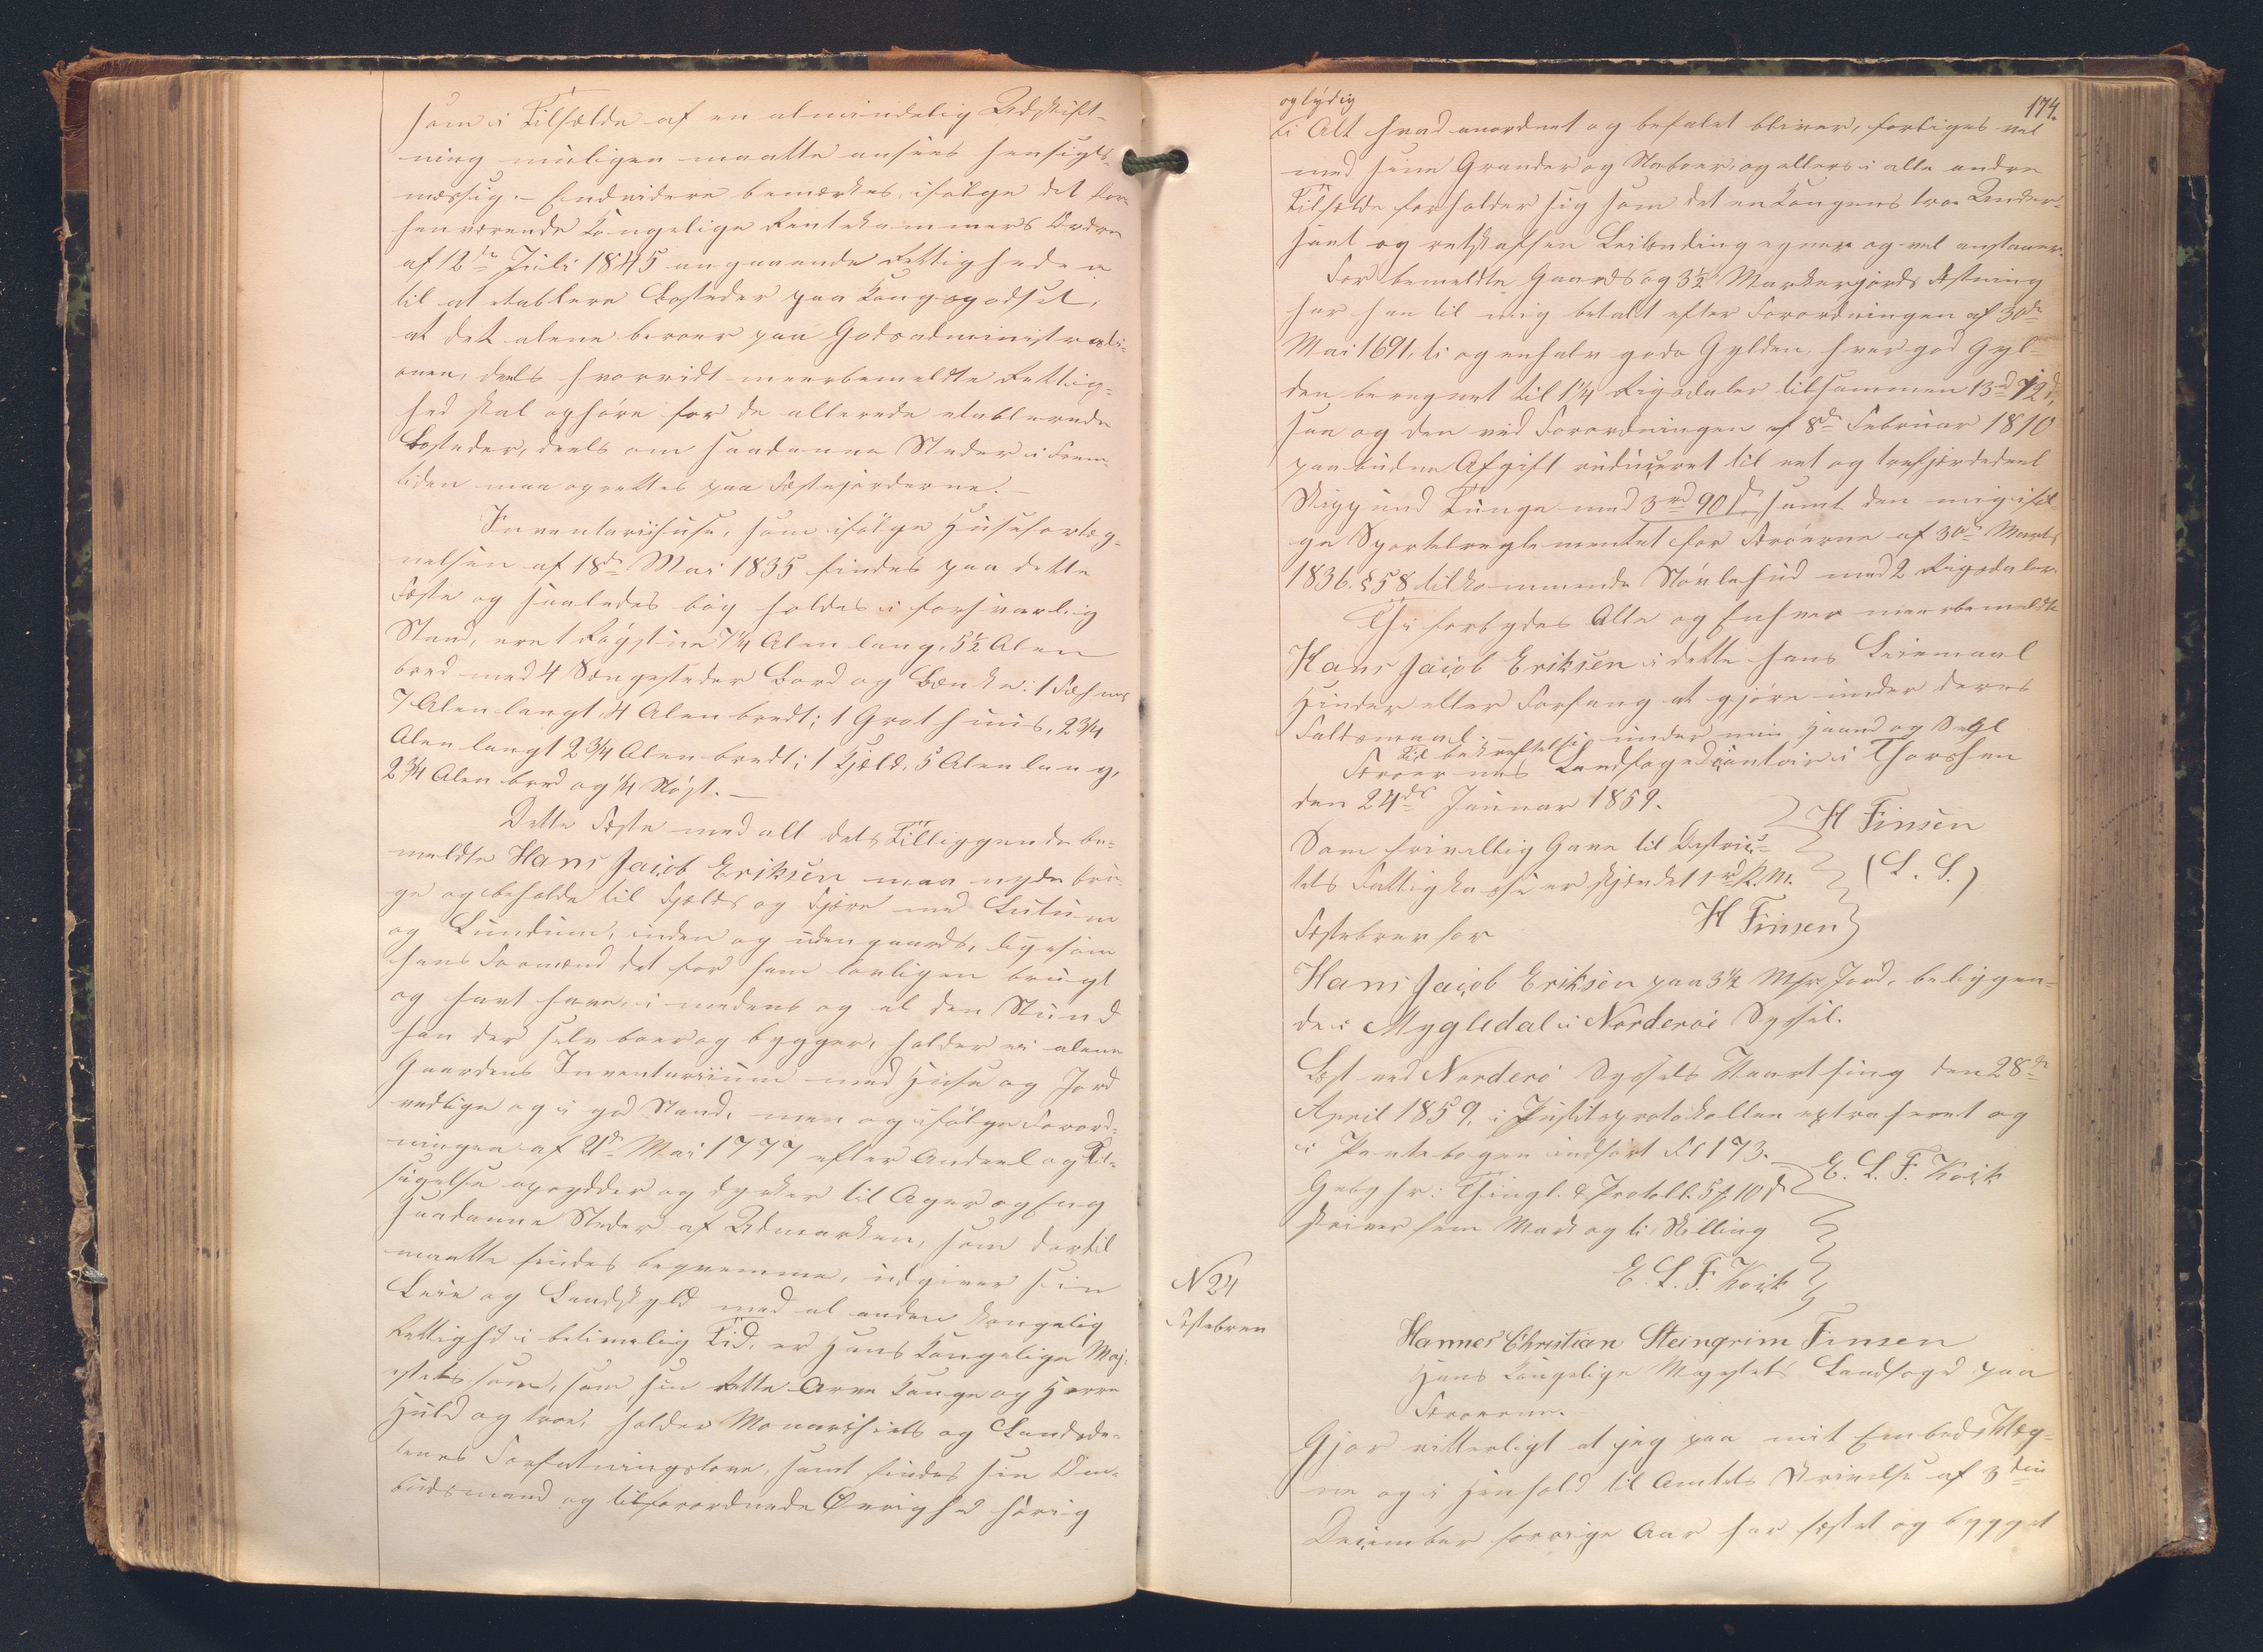 som i Tilfælde af en almindelig Udskift-
ning muligen maatte ansees hensigts-
mæssig. – Endvidere bemærkes, ifølge det for-
henværende Kongelige Rentekammers Ordre
af 12te Juli 1845 angaaende Rettigheden
til at etablere Bosteder paa Kongsgodset,
at det alene beroer paa Godsadministrati-
onen, deels hvorvidt meerbemeldte Rettig-
hed skal ophøre for de allerede etablerede
Bosteder, deels om saadanne Steder i Frem-
tiden maa oprettes paa Fæstejorderne. –
Inventariihuse, som ifølge Husefortæg-
nelsen af 18de Mai 1835 findes paa dette
Fæste og saaledes bør holdes i forsvarlig
Stand, ere 1 Røgstue 7¼ Alen lang, 5½ Alen
bred med 4 Sengesteder Bord og Bænke; 1 Fæhuus
7 Alen langt, 4 Alen bredt; 1 Grothuus, 2¾
Alen langt 2¾ Alen bredt; 1 Hjeld, 5 Alen lang,
2¾ Alen bred og ¼ Nøst. –
Dette Fæste med alt dets Tilliggende be-
meldte Hans Jacob Eriksen maa nyde bru-
ge og beholde til Fjelds og Fjære med Lutum
og Lundum, inden og udengaards, ligesom
hans Formænd det før ham lovligen brugt
og havt have, imedens og al den Stund
han der selv boer og bygger, holder ei alene
Gaardens Inventarium med Huse og Jord
vedlige og i god Stand, men og ifølge Forord-
ningen af 21de Mai 1777 efter Andeel og Til-
sigelse oprydder og dyrker til Ager og Eng
saadanne Steder af Udmarken, som dertil
maatte findes beqvemme, udgiver sin
Leie og Landskyld med al anden kongelig
Rettighed i betimelig Tid, er Hans Kongelige Maj-
estæt som, som sin rette Arve Konge og Herre
Huld og troe, holder Monarchiets og Landsde-
lenes Forfatningslove, samt findes sin Om-
budsmand og tilforordnede Øvrighed hørig
174.
og lydig
i Alt hvad anordnet og befalet bliver, forliges vel
med sine Grander og Naboer, og ellers i alle andre
Tilfælde forholder sig som det en Kongens troe Under-
saat og retskaffen Leilending egner og vel anstaaer.
For bemeldte Gaards og 3½ Markerjords Fæstning
har han til mig betalt efter Forordningen af 30te
Mai 1691, ti og en halv gode Gylden, hver god Gyl-
den beregnet til 1¼ Rigsdaler tilsammen 13rd 12s,
saa og den ved Forordningen af 8de Februar 1810
paabudne Afgift reduceret til eet og trefjerdedeel
Skippund Tunge med 3rd 90s, samt den mig iføl-
ge Sportelreglementet for Færøerne af 30te Marts
1836 § 58 tilkommende Støvlehud med 2 Rigsdaler.
Thi forbydes Alle og Enhver meerbemeldte
Hans Jacob Eriksen i dette hans Leiemaal
Hinder eller Forfang at gjøre under deres
Faldsmaal.
Til bekræftelse under min Haand og Segl
Færøernes Landfogedcontoir i Thorshavn
den 24de Januar 1859.
H Finsen
Som frivillig Gave til Distric-
tets Fattigkasse er skjænket 1rd R.M.
(L. S.)
H Finsen
Fæstebrev for
Hans Jacob Eriksen paa 3½ Mkr. Jord, beliggen-
de i Mygledal i Norderøe Syssel.
Læst ved Norderø Syssels Vaarthing den 28de
April 1859, i Justitsprotokollen extraheret og
i Pantebogen indført Fol 173.
E. L. F. Kock
Gebyhr: Thingl. & Protoll. 5 ₰ 10 s
skriver fem Mark og ti Skilling
E. L. F. Kock
N 24
Fæstebrev
Hannes Christian Steingrim Finsen
Hans Kongelige Majestæts Landfoged paa
Færøerne.
Gjør vitterligt at jeg paa mit Embeds Veg-
ne og i Henhold til Amtets Skrivelse af 3die
December forrige Aar har fæstet og bygget